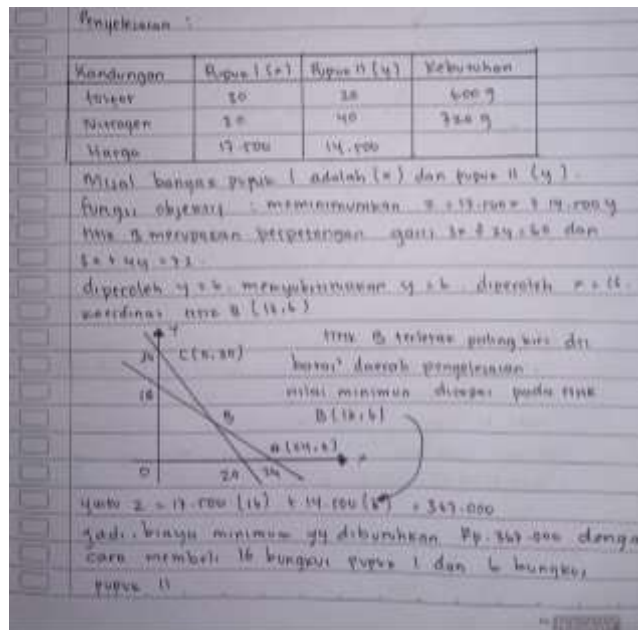 Penyelesaian :
Kandungan Pupuk I (x) Pupuk II (y) Kebutuhan
fosfor 30 20 600 g
Nitrogen 30 40 720 g
Harga 17.500 14.500
Misal banyak pupuk I adalah (x) dan pupuk II (y).
fungsi objektif : meminimumkan z = 17.500x + 14.500y
titik B merupakan perpotongan garis 3x + 2y = 60 dan
3x + 4y = 72
diperoleh y = 6. menyubstitusikan y = 6 diperoleh x = 16
koordinat titik B (16,6)
y
30 C(0,30)
titik B terletak paling kiri dri
batas² daerah penyelesaian
18
nilai minimum dicapai pada titik
B
B(16,6)
0 20 24 x
yaitu z = 17.500 (16) + 14.500 (6) = 367.000
jadi, biaya minimum yg dibutuhkan Rp. 367.000 denga
cara membeli 16 bungkus pupuk I dan 6 bungkus
pupuk II